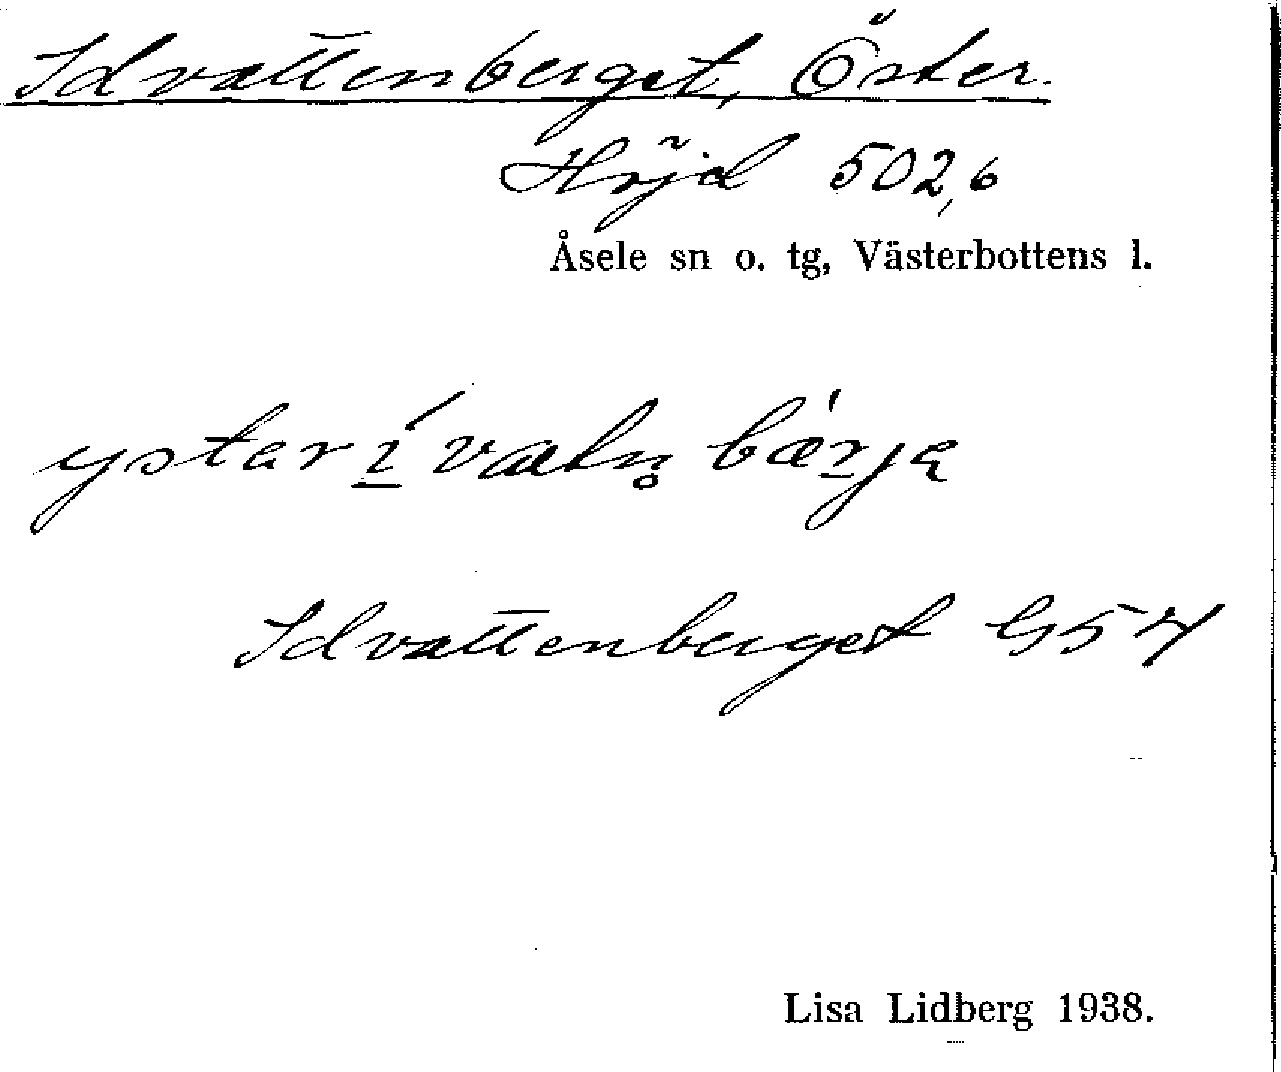 Idvattenberget, Öster.
Höjd 502,6
Åsele sn o. tg, Västerbottens l.
ystar í̱ vatn̥ bæṟja
Idvattenberget G57
Lisa Lidberg 1938.